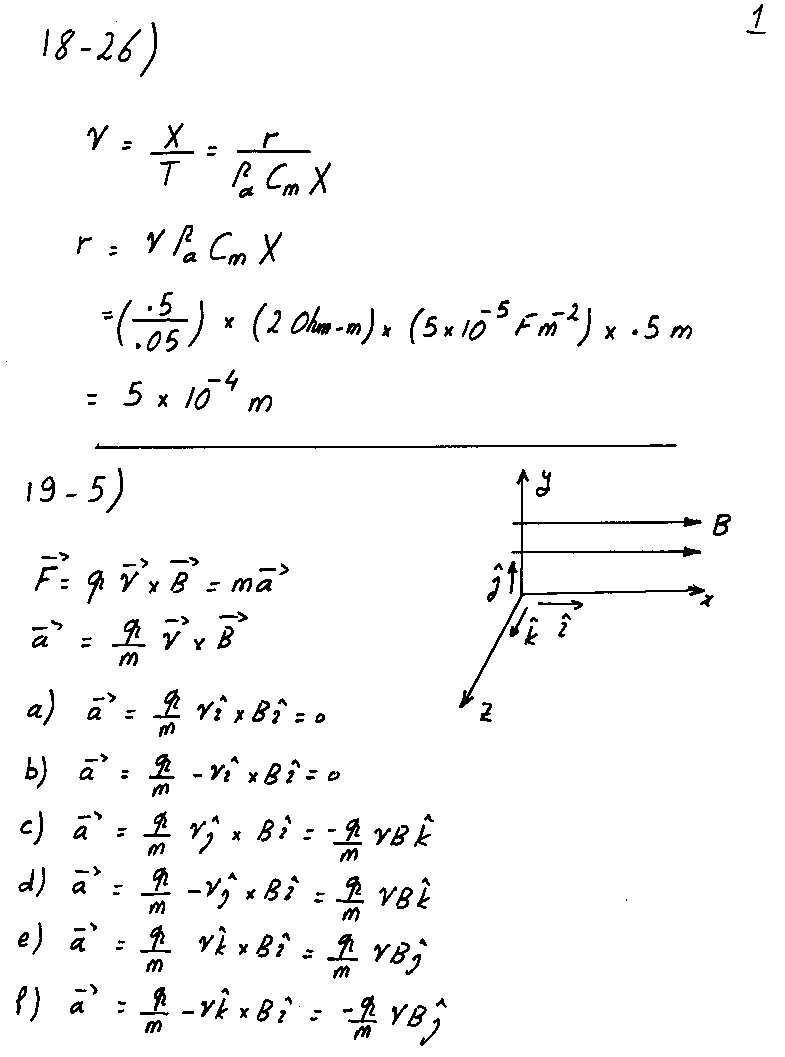 1
18-26)
v = X/T = r/(ρₐ Cₘ X)
r = v ρₐ Cₘ X
=(.5/.05) × (2 Ohm-m) × (5×10⁻⁵ F m⁻²) × .5 m
= 5 × 10⁻⁴ m
19-5)
F⃗ = q v⃗ × B⃗ = m a⃗
a⃗ = q/m v⃗ × B⃗
a) a⃗ = q/m v î × B î = 0
b) a⃗ = q/m - v î × B î = 0
c) a⃗ = q/m v ĵ × B î = -q/m v B k̂
d) a⃗ = q/m - v ĵ × B î = q/m v B k̂
e) a⃗ = q/m v k̂ × B î = q/m v B ĵ
f) a⃗ = q/m - v k̂ × B î = -q/m v B ĵ
y
B
ĵ
x
k̂ î
z